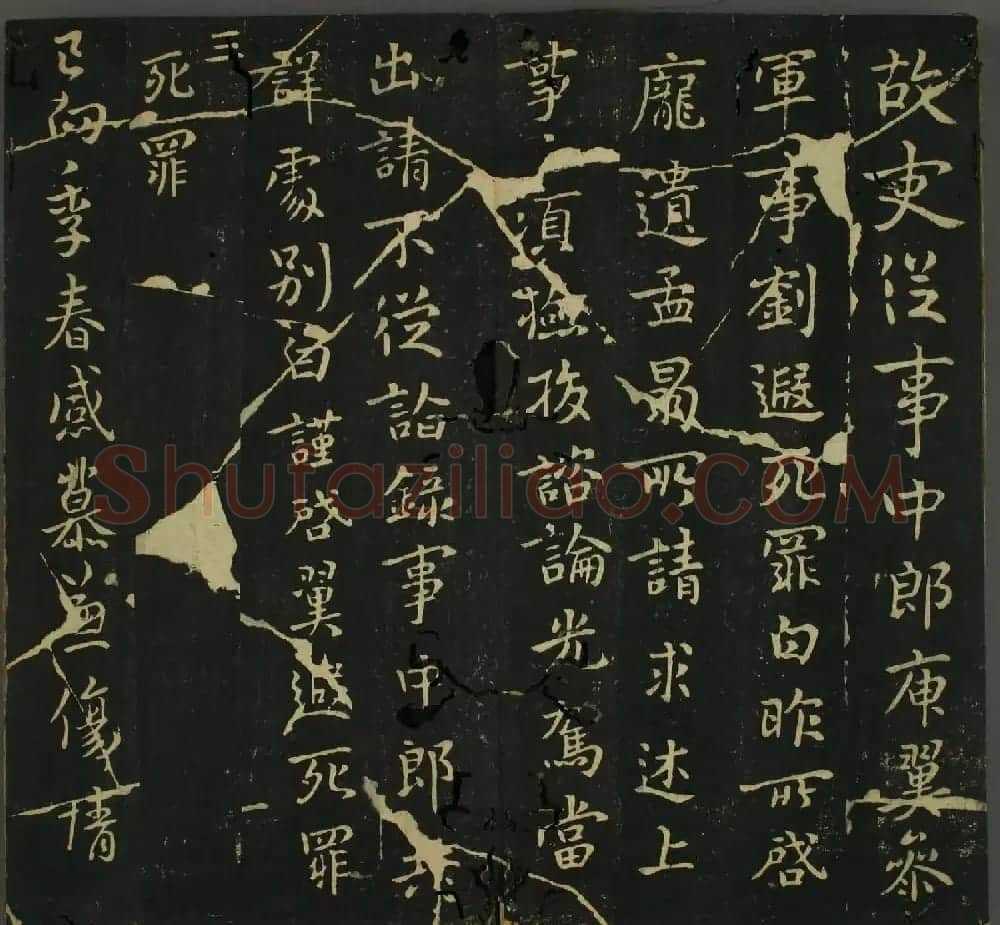 故吏從事中郎庾翼參
軍事劉遐死罪白昨所啓
龐遺孟昺所請求述上
事事須檢校諮論光駕當
出請不從詣錄事中郎共
詳處別白謹啓翼遐死罪
死罪
三
告郗季春感慕兼傷情
Shufaziliao.COM